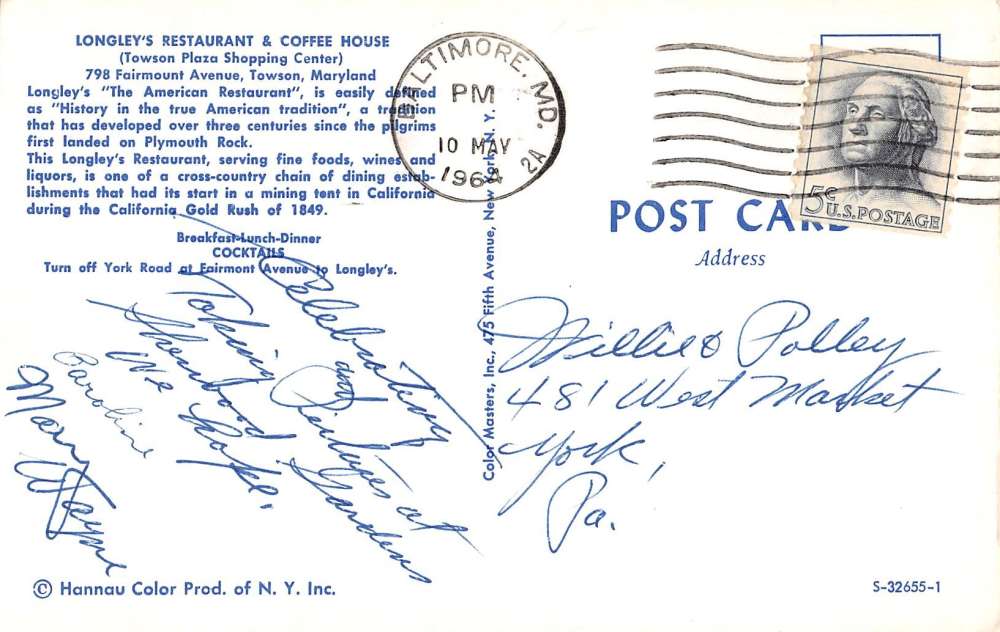 LONGLEY'S RESTAURANT & COFFEE HOUSE
(Towson Plaza Shopping Center)
798 Fairmount Avenue, Towson, Maryland
Longley's "The American Restaurant", is easily defined
as "History in the true American tradition", a tradition
that has developed over three centuries since the pilgrims
first landed on Plymouth Rock.
This Longley's Restaurant, serving fine foods, wines and
liquors, is one of a cross-country chain of dining estab-
lishments that had its start in a mining tent in California
during the California Gold Rush of 1849.
Breakfast-Lunch-Dinner
COCKTAILS
Turn off York Road at Fairmont Avenue to Longley's.
Celebrating
and
Taking Pictures at
Sherwood Gardens
we hope.
Caroline
Mary Wayne
© Hannau Color Prod. of N. Y. Inc.
Color Masters, Inc., 475 Fifth Avenue, New York, N. Y.
BALTIMORE, MD.
PM
10 MAY
1964
2A
5c
U.S. POSTAGE
POST CARD
Address
Polley
481 West Market
York,
Pa.
S-32655-1